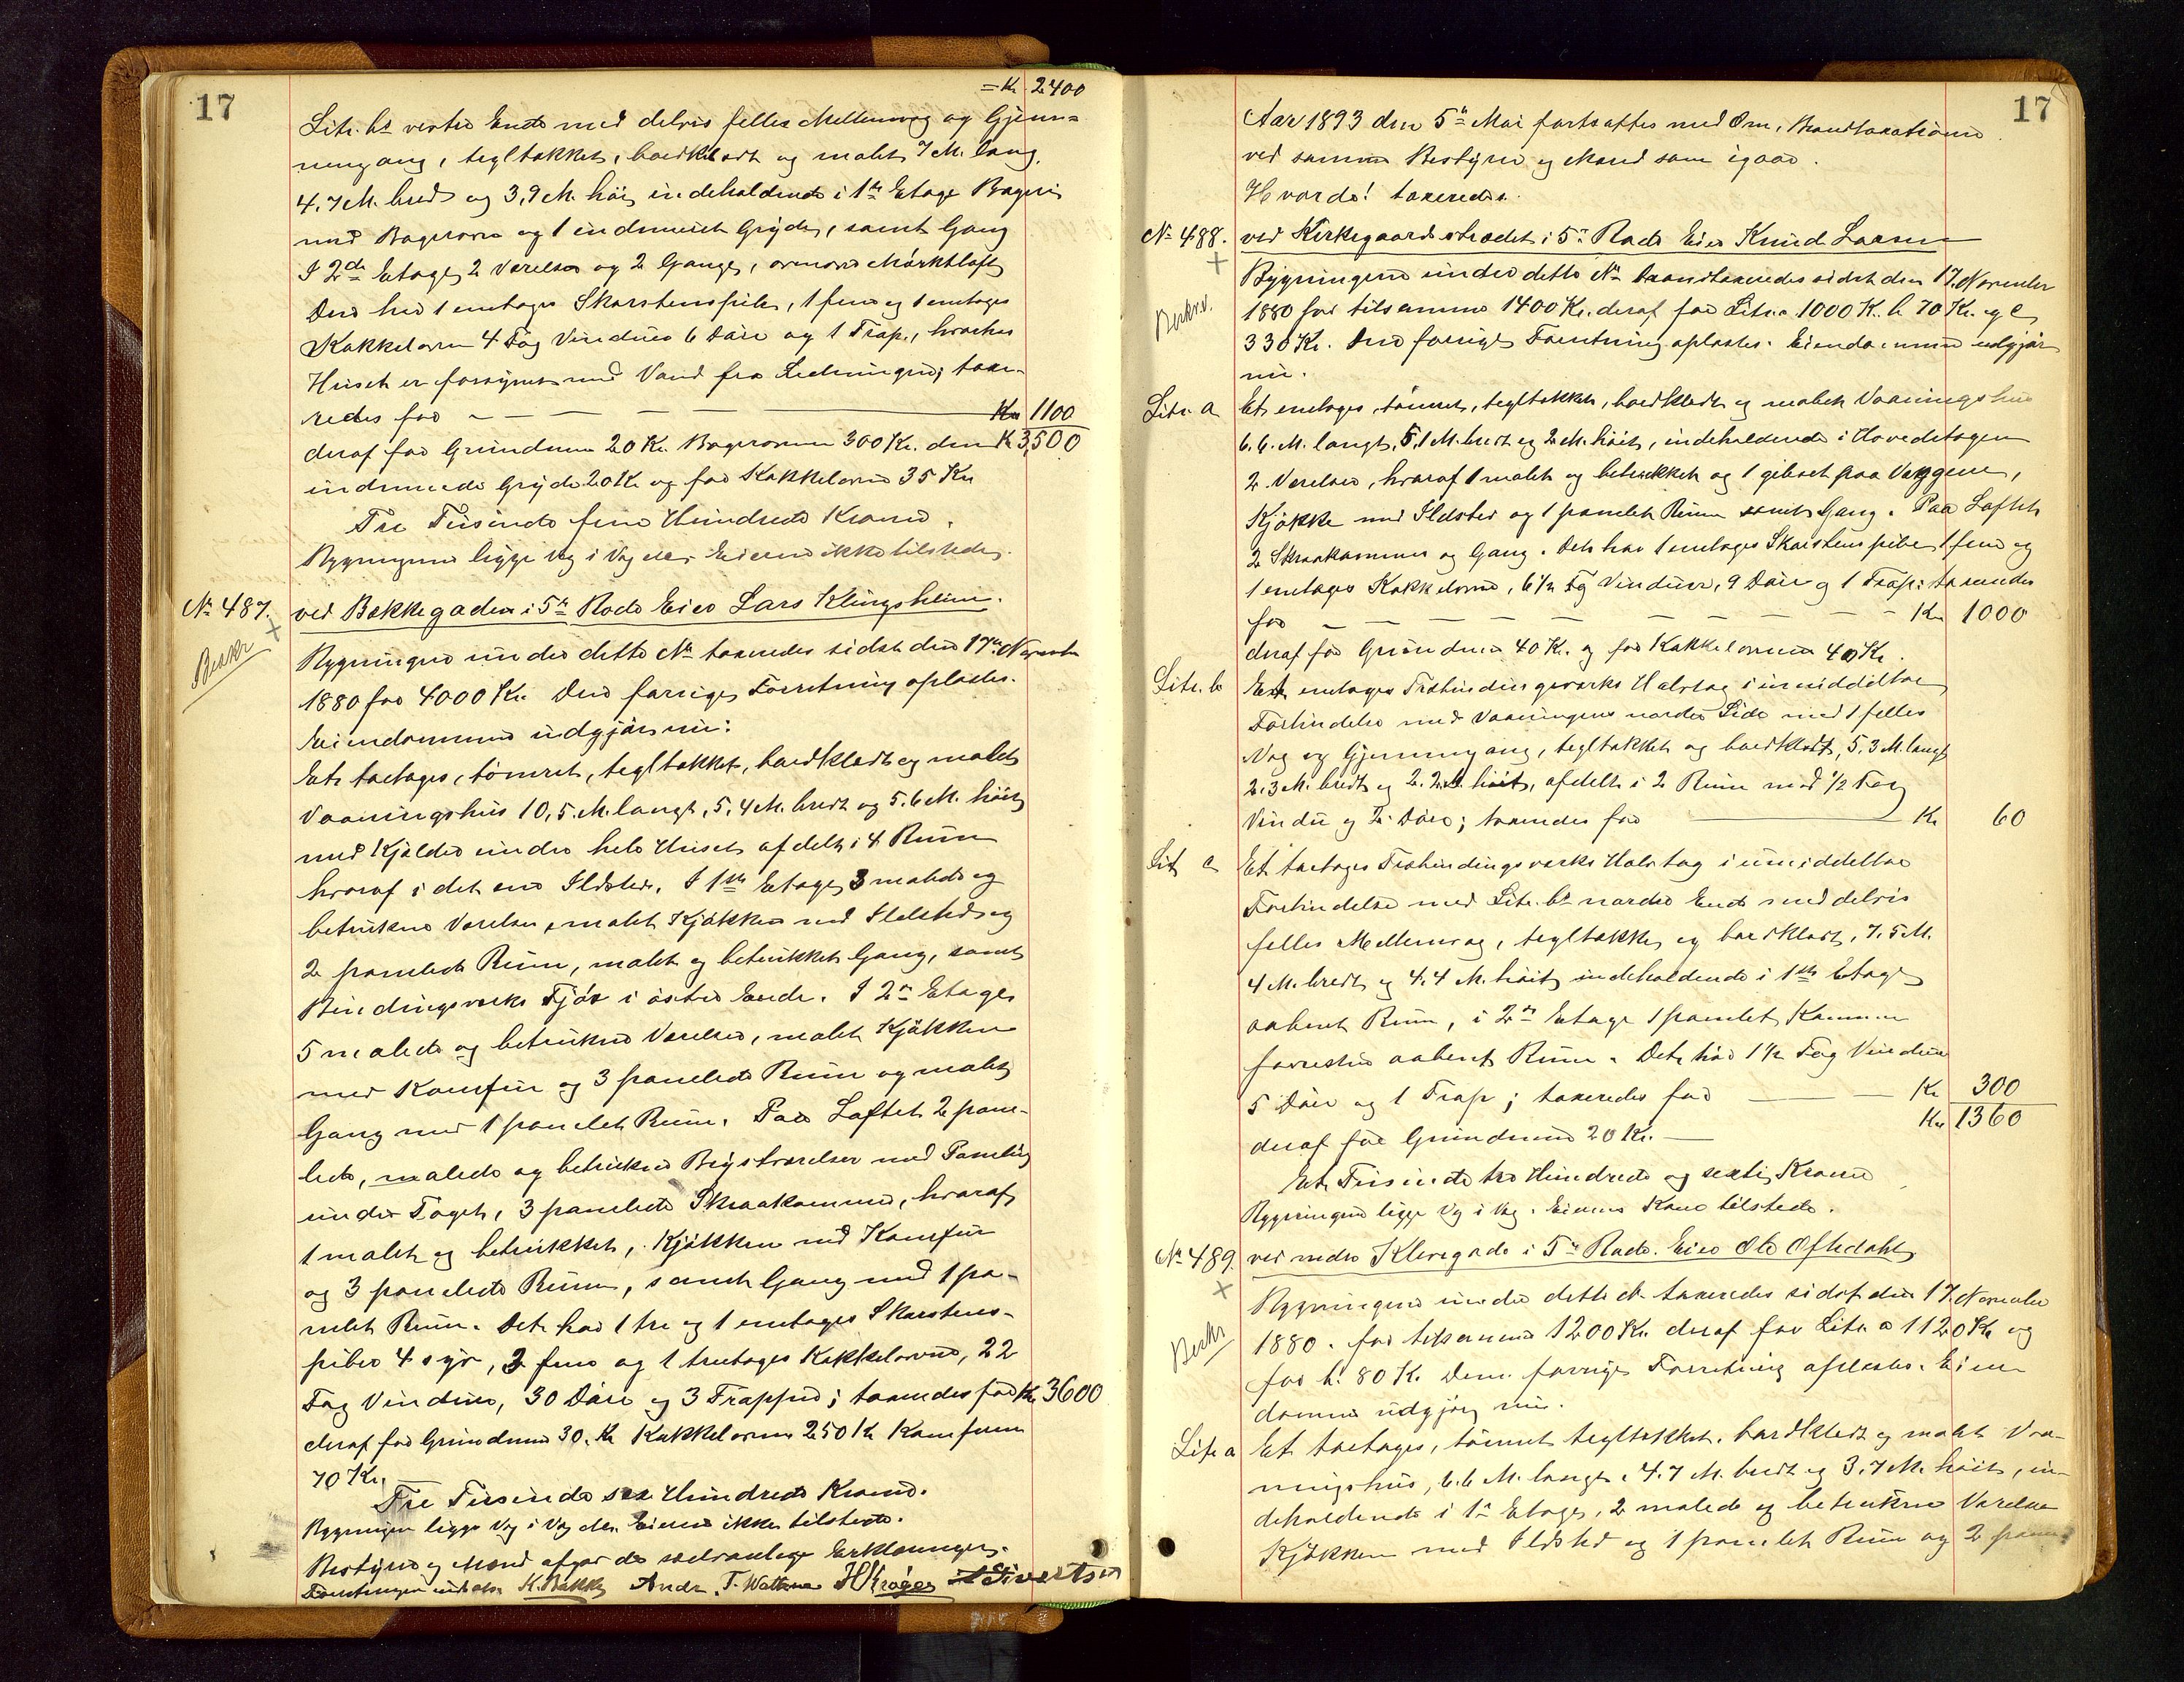 17
= Kr. 2400
Litr. b's vestre Ende med delvis felles Mellemvæg og Gjen-
nemgang, tegltækket, bordklædt og malet 7 M. lang,
4,7 M. bred og 3,9 M. høi, indeholdende i 1ste Etage Bageri
med Bagerovn og 1 indmuret Gryde, samt Gang
I 2den Etage 2 Værelser og 2 Gange, ovenover Mørktloft
Den har 1 entages Skorstenspibe, 1 fem og 1 entages
Kakkelovn 4 Fag Vinduer 6 Døre og 1 Trap,
Huset er forsynet med Vand fra Ledningen; taxe-
redes for — — — Kr 1100
deraf for Grunden 20 Kr. Bagerovnen 300 Kr. den Kr 3,500
indmurede Gryde 20 Kr og for Kakkelovne 35 Kr
Tre Tusinde fem Hundrede Kroner.
Bygningerne ligge Væg i Væg Eieren ikke tilstede.
No 487. ved Bakkegaden i 5te Rode Eier Lars Klingsheim.
Beskr
Bygningerne under dette No taxeredes sidst den 17de November
1880 for 4000 Kr. Den forrige Forretning oplæstes.
Eiendommen udgjør nu:
Et toetages, tømret, tegltækket, bordklædt og malet
Vaaningshus 10,5 M. langt, 5,4 M. bredt og 5.6 M. høit
med Kjelder under hele Huset afdelt i 4 Rum
hvoraf i det ene Ildsted. I 1ste Etage 3 malede og
betrukne Værelser, malet Kjøkken med Ildsted og
2 panelede Rum, malet og betrukket Gang, samt
Bindingsværks Fjøs i østre Ende. I 2den Etage
5 malede og betrukne Værelser, malet Kjøkken
med Komfur og 3 panelede Rum og malet
Gang med 1 panelet Rum. Paa Loftet 2 pane-
lede, malede og betrukne Bryst værelser med Paneling
under Taget, 3 panelede Skraakammer, hvoraf
1 malet og betrukket, Kjøkken med Komfur
og 3 panelede Rum, samt Gang med 1 pa-
nelet Rum. Det har 1 tre og 1 entages Skorstens-
piber 4 syv, 2 fem og 1 treetages Kakkelovne, 22
Fag Vinduer, 30 Døre og 3 Trapper; taxeredes for Kr 3600
deraf for Grunden 30. Kr Kakkelovne 250 Kr Komfuren
70 Kr.
Tre Tusinde sex Hundrede Kroner.
Bygningen ligge Væg i Væg Eieren ikke tilstede.
Bestyrer og Mænd afgav de sædvanlige Erklæringer.
Forretningen K. Bakke Andr. T. Wattne H Krøger Sivertsen
17
Aar 1893 den 5te Mai fortsattes med Om. Brandtaxationen
ved samme Bestyrer og Mænd som igaar.
Hvorda! taxeredes.
No 488. ved Kirkegaardstrædet i 5te Rode Eier Knud Larsen
Beskrv.
Bygningerne under dette No brandtaxeredes sidst den 17. November
1880 for tilsammen 1400 Kr. deraf for Litr. a 1000 K. b. 70 Kr. og C
330 Kr. Den forrige Forretning oplæstes. Eiendommen udgjør
nu.
Litr. a Et entages, tømret, tegltækket, bordklædt og malet Vaaningshus
6.6. M. langt, 5,1 M. bredt og 2 M. høit, indeholdende i Hovedetagen
2 Værelser, hvoraf 1 malet og betrækket og 1 gibset paa Væggene,
Kjøkken med Ildsted og 1 panelet Rum samt Gang. Paa Loftet
2 Skraakammer og Gang. Det har 1 entages Skorstenspibe 1 fem og
1 entages Kakkelovne, 6 1/2 Fg Vinduer, 9 Døre og 1 Trap: taxeredes
for — — — Kr 1000
deraf for Grunden 40 Kr. og for Kakkelovnene 40 Kr.
Litr. b Et entages Træbindingsværks Halvtag i umiddelbar
Forbindelse med Vaaningens nordre Side med 1 felles
Væg og Gjennemgang, tegltækket og bordklædt, 5.3 M. langt
2.3 M. bredt og 2.2 M. høit, afdelt i 2 Rum med 1/2 Fag
Vindu og 2 Døre; taxeredes for — Kr 60
Lit c Et toetages Træbindingsværks Halvtag i umiddelbar
Forbindelse med Litr. b's nordre Ende med delvis
felles Mellemvæg, tegltækket og bordklædt, 7.5 M.
4 M. bredt og 4.4 M. høit, indeholdende i 1ste Etage
aabent Rum, i 2den Etage 1 panelet Kammer
forresten aabent Rum. Det har 1 1/2 Fag Vinduer
5 Døre og 1 Trap; taxeredes for — Kr 300
deraf for Grunden 20 Kr. — Kr 1360
Et Tusinde tre Hundrede og sexti Kroner
Bygningen ligge Væg i Væg. Eierens Kone tilstede.
No 489. ved nedre Klevegade i 5te Rode. Eier Ole Oftedahl
Beskr
Bygningerne under dette No taxeredes sidst den 17. November
1880. for tilsammen 1200 Kr. deraf for Litr. a 1120 Kr og
for b. 80 K. Den forrige Forretning oplæstes. Eien-
dommen udgjør nu.
Litr a Et toetages, tømret tegltækket, bordklædt og malet Vaa-
ningshus, 6.6 M. langt, 4.7 M. bredt og 3.7 M. høit, in-
deholdende i 1ste Etage, 2 malede og betrukne Værelser
Kjøkken med Ildsted og 1 panelet Rum og 2